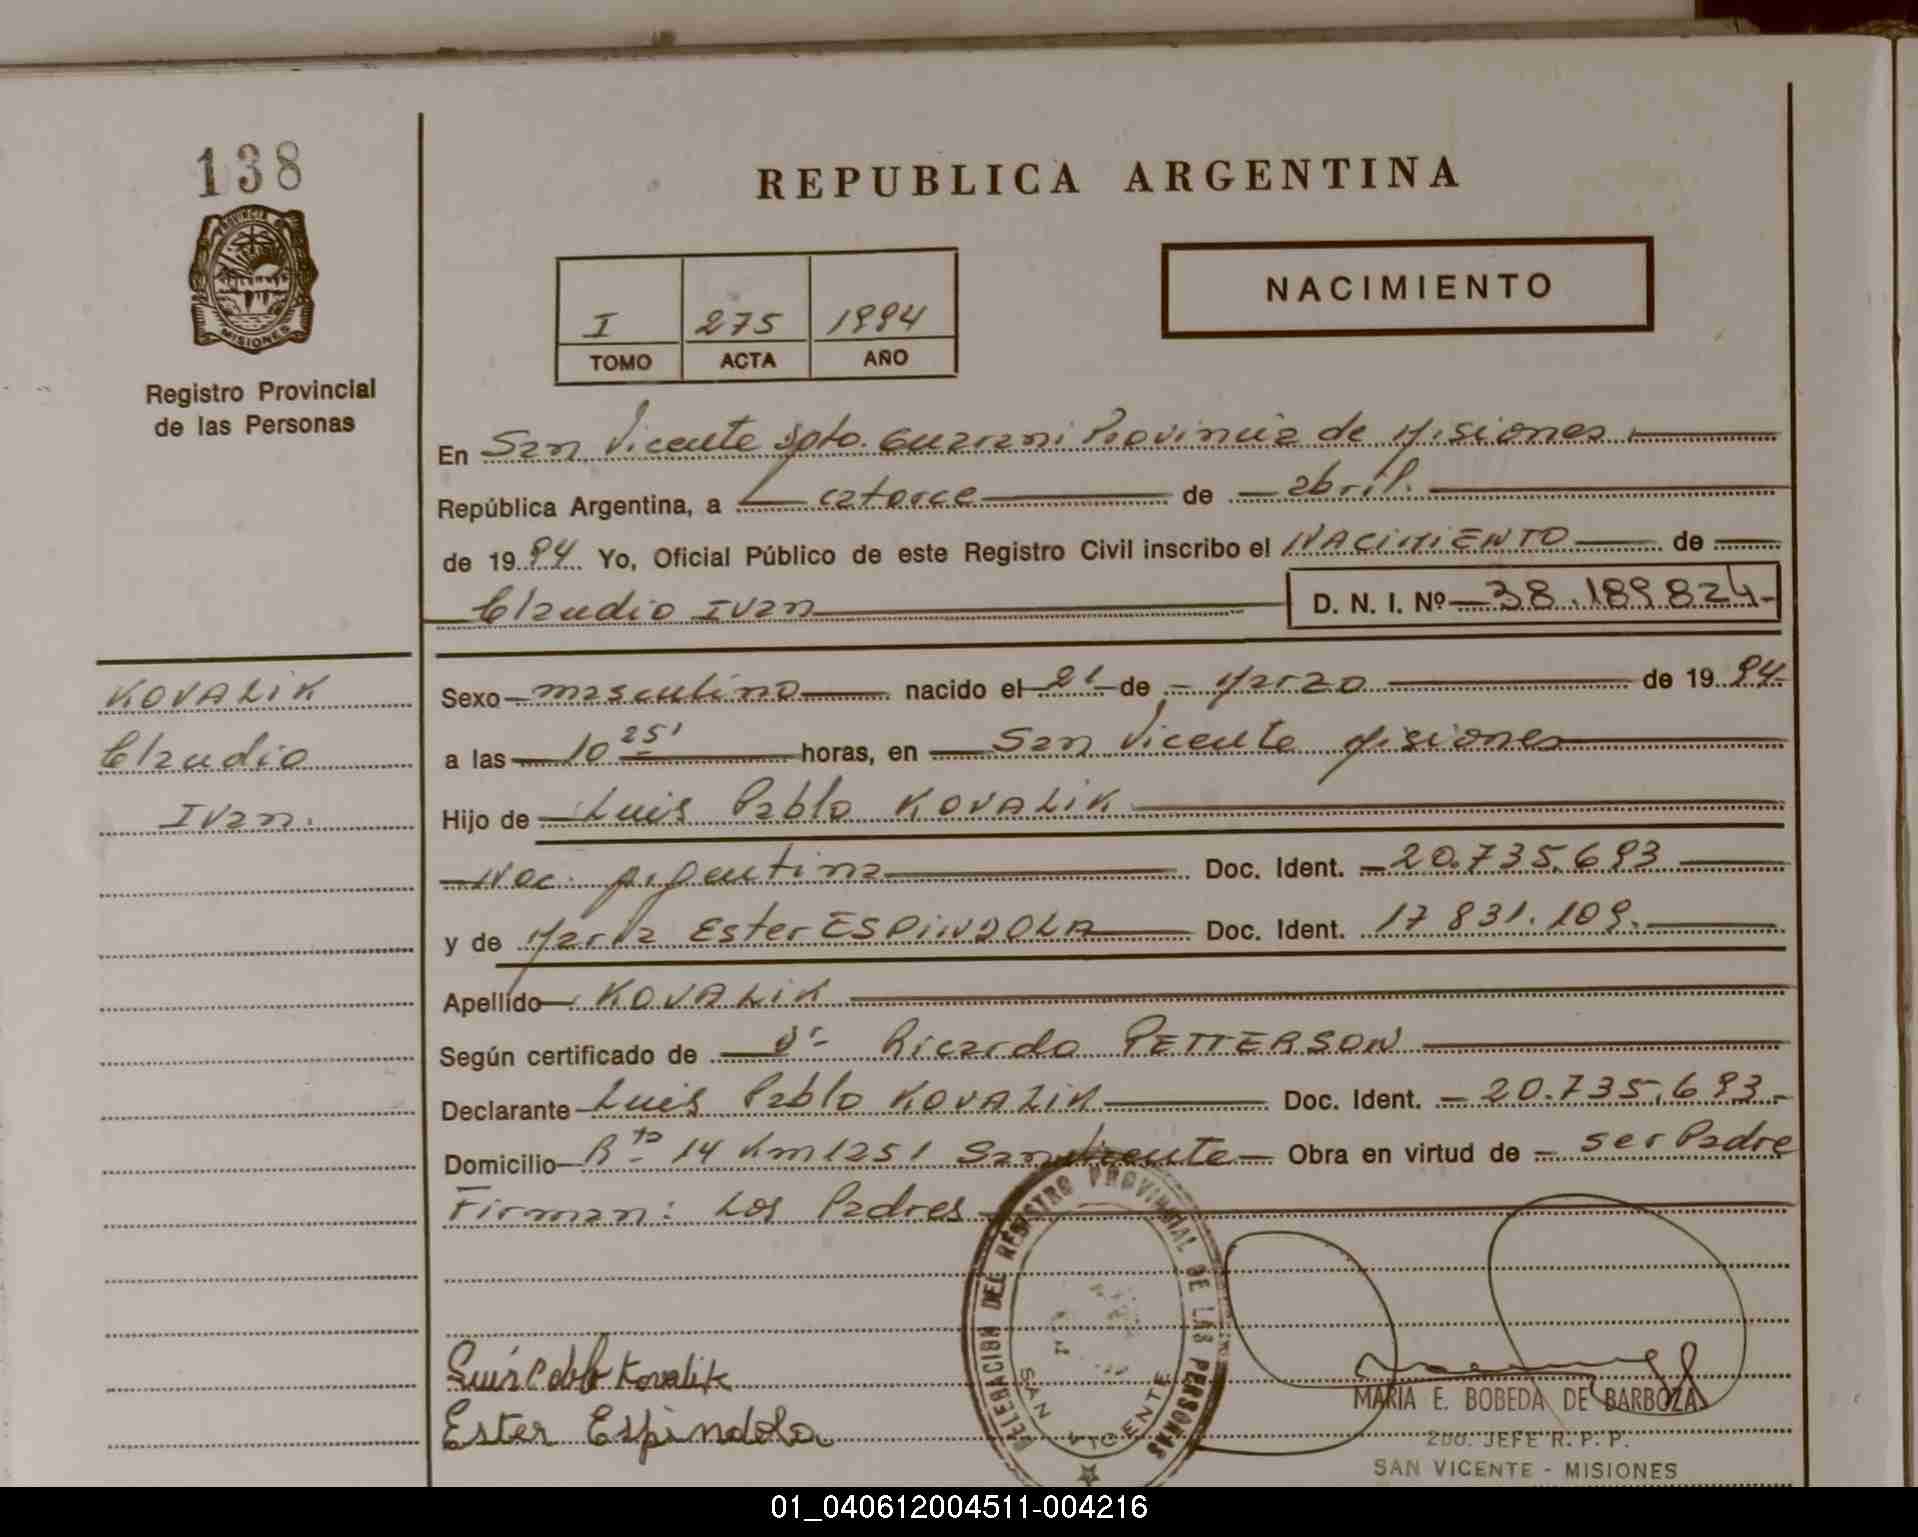 138
MISIONES
Registro Provincial
de las Personas
REPUBLICA ARGENTINA
I 275 1994
TOMO ACTA AÑO
NACIMIENTO
En San Vicente Dpto. Guarani Provincia de Misiones
República Argentina, a catorce de abril.
de 1994 Yo, Oficial Público de este Registro Civil inscribo el NACIMIENTO de
Claudio Ivan D. N. I. Nº 38.189824
KOVALIK
Claudio
Ivan.
Sexo masculino nacido el 21 de Marzo de 1994
a las 10 25' horas, en San Vicente Misiones
Hijo de Luis Pablo KOVALIK
Nac. Argentina Doc. Ident. 20.735.693
y de Maria Ester ESPINDOLA Doc. Ident. 17 831.109.
Apellido KOVALIK
Según certificado de Dr Ricardo PETTERSON
Declarante Luis Pablo KOVALIK Doc. Ident. 20.735.693.
Domicilio Rta 14 Km 1251 San Vicente Obra en virtud de ser Padre
Firman: Los Padres
DELEGACION DEL REGISTRO PROVINCIAL DE LAS PERSONAS
SAN VICENTE
Luis Pablo Kovalik
Ester Espindola
MARIA E. BOBEDA DE BARBOZA
2DO. JEFE R. P. P.
SAN VICENTE - MISIONES
01_040612004511-004216